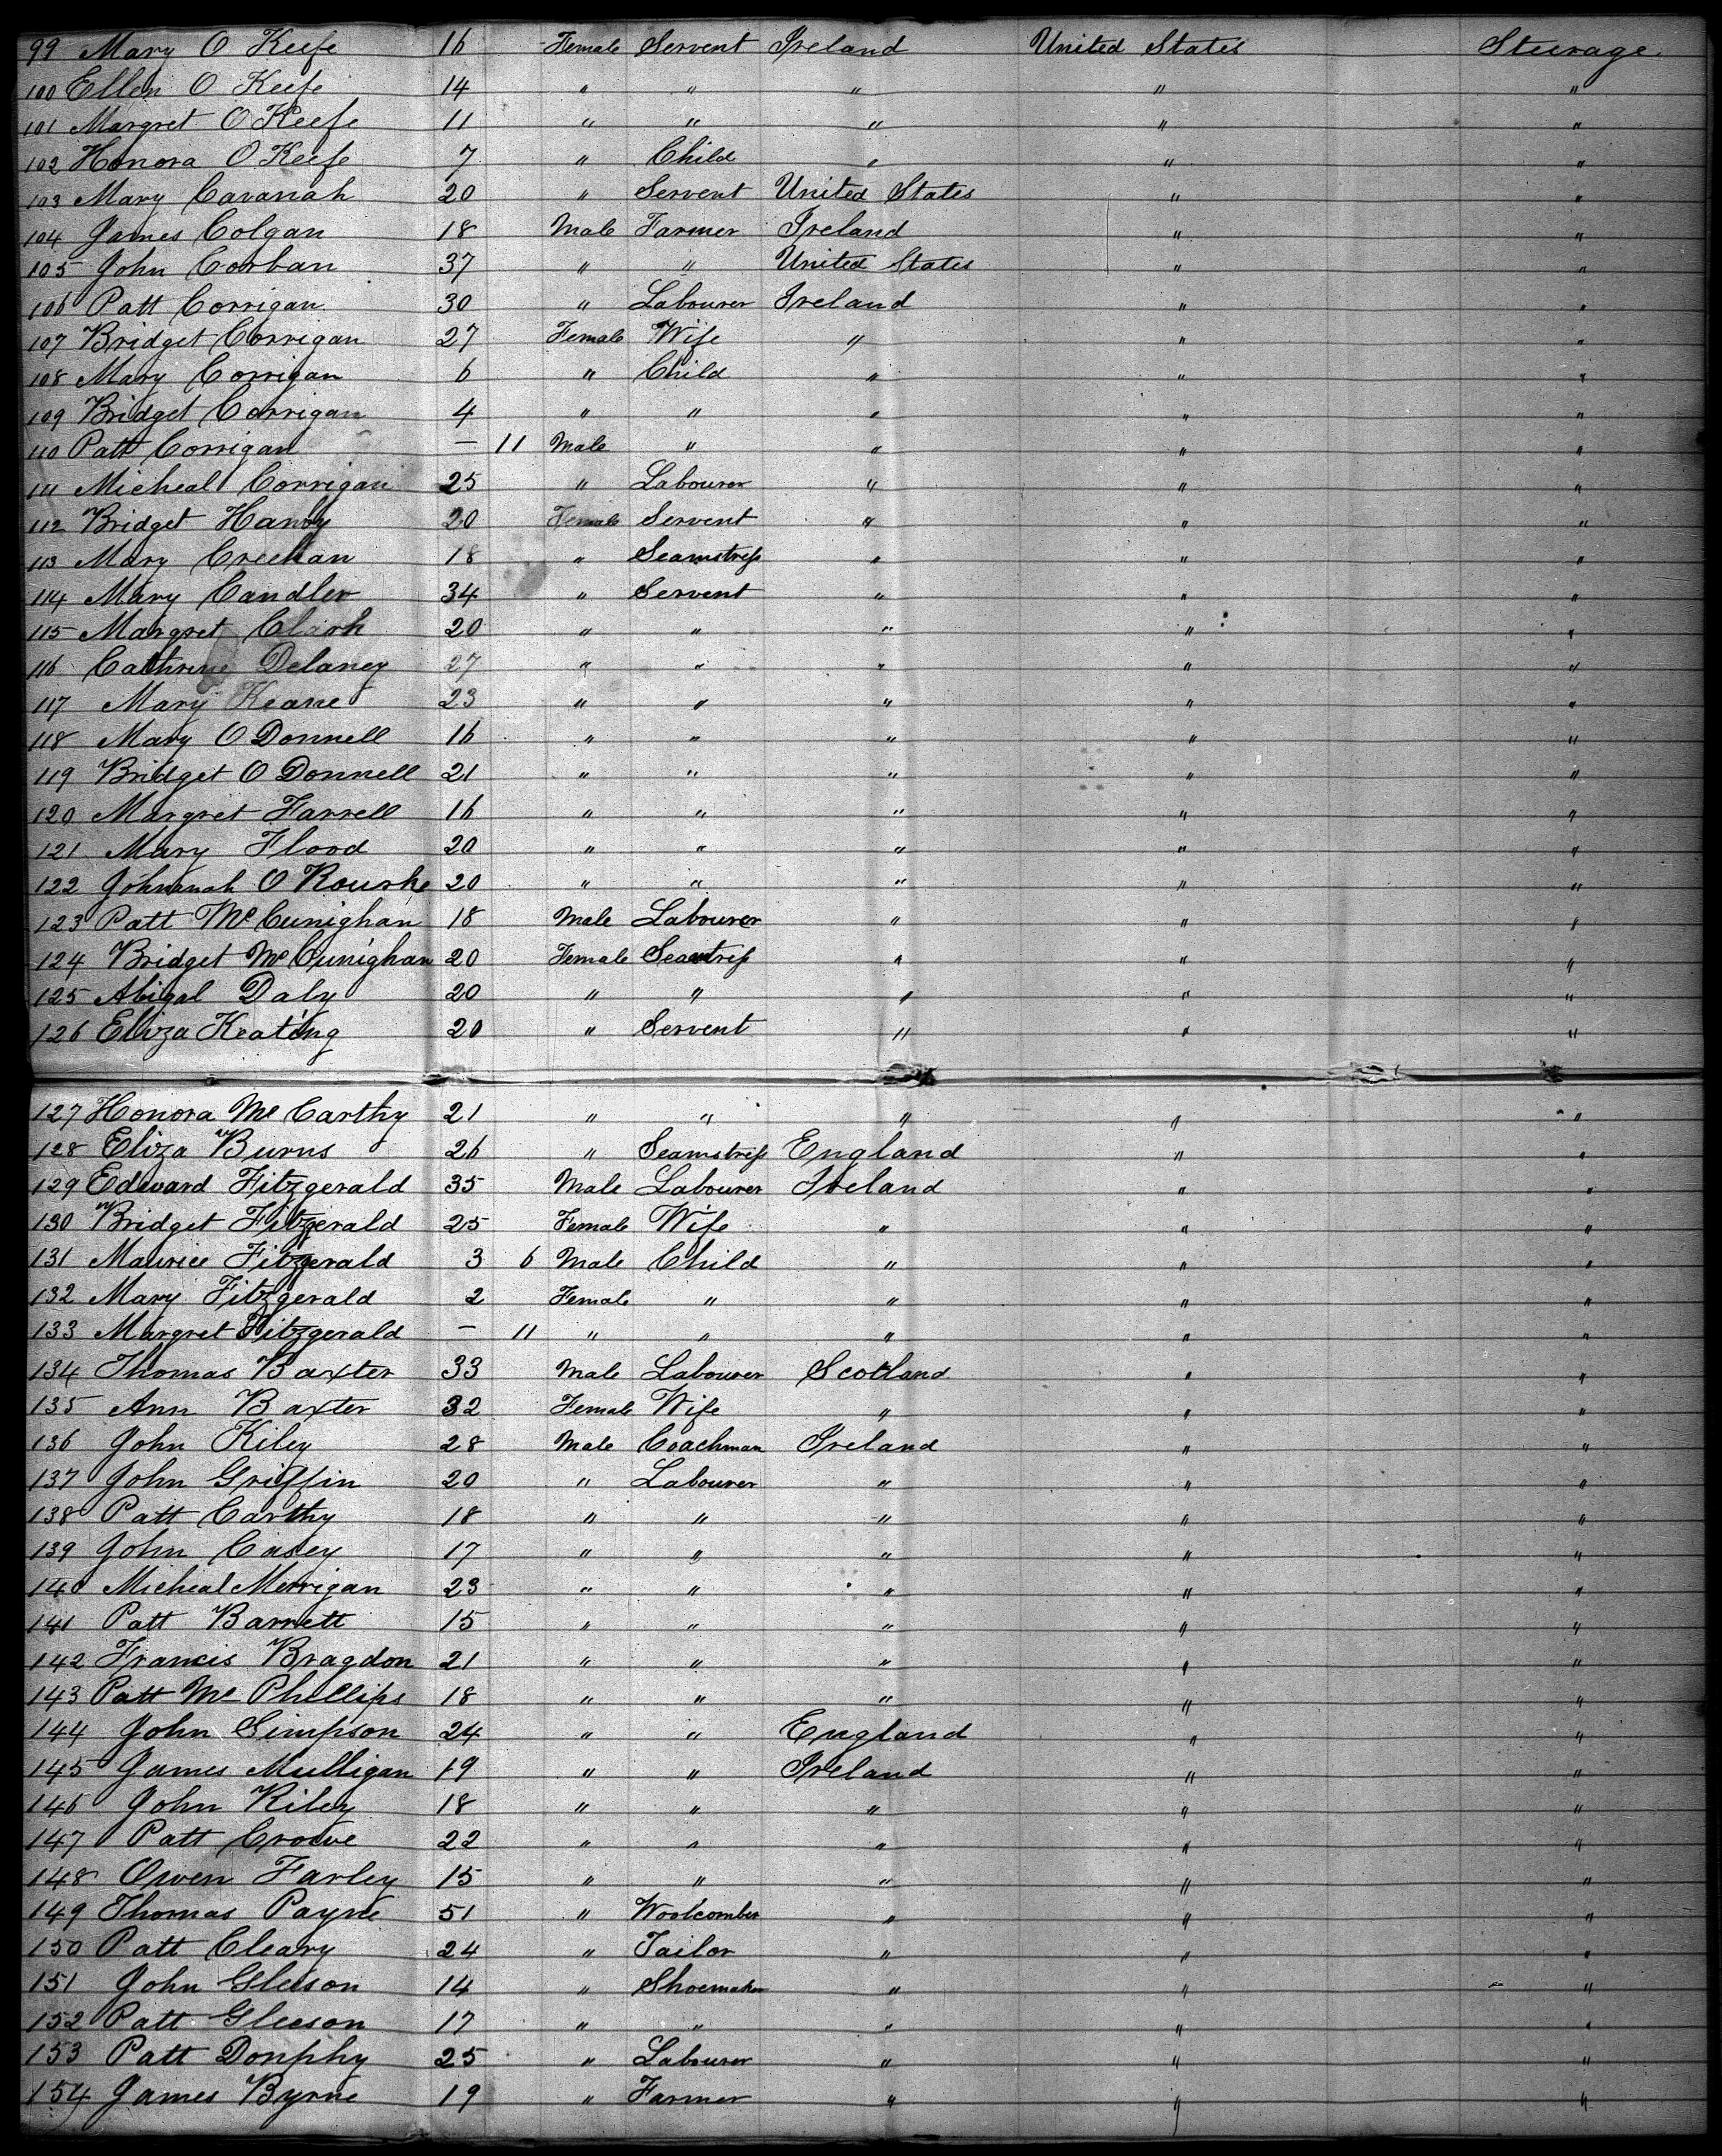 99 Mary O Keefe 16 Female Servent Ireland United States Steerage
100 Ellen O Keefe 14 " " " " "
101 Margret O Keefe 11 " " " " "
102 Honora O Keefe 7 " Child " " "
103 Mary Cavanah 20 " Servent United States " "
104 James Colgan 18 Male Farmer Ireland " "
105 John Corban 37 " " United States " "
106 Patt Corrigan 30 " Labourer Ireland " "
107 Bridget Corrigan 27 Female Wife " " "
108 Mary Corrigan 6 " Child " " "
109 Bridget Corrigan 4 " " " " "
110 Patt Corrigan — 11 Male " " " "
111 Micheal Corrigan 25 " Labourer " " "
112 Bridget 20 Female Servent " " "
113 Mary Creehan 18 " Seamstress " " "
114 Mary Candler 34 " Servent " " "
115 Margret Clark 20 " " " " "
116 Cathrine Delaney 27 " " " " "
117 Mary Keane 23 " " " " "
118 Mary O Donnell 16 " " " " "
119 Bridget O Donnell 21 " " " " "
120 Margret Farrell 16 " " " " "
121 Mary Flood 20 " " " " "
122 Johnanah O Rourke 20 " " " " "
123 Patt McCunighan 18 Male Labourer " " "
124 Bridget McCunighan 20 Female " " "
125 Abigal Daly 20 " " " " "
126 Eliza Keating 20 " Servent " " "
127 Honora McCarthy 21 " " " " "
128 Eliza Burns 26 " Seamstress England " "
129 Edward Fitzgerald 35 Male Labourer Ireland " "
130 Bridget Fitzgerald 25 Female Wife " " "
131 Maurice Fitzgerald 3 6 Male Child " " "
132 Mary Fitzgerald 2 Female " " " "
133 Margret Fitzgerald — 11 " " " " "
134 Thomas Baxter 33 Male Labourer Scotland " "
135 Ann Baxter 32 Female Wife " " "
136 John Kiley 28 Male Coachman Ireland " "
137 John Griffin 20 " Labourer " " "
138 Patt Carthy 18 " " " " "
139 John Casey 17 " " " " "
140 Micheal Merrigan 23 " " " " "
141 Patt Barrett 15 " " " " "
142 Francis Bragdon 21 " " " " "
143 Patt Mc Phillips 18 " " " " "
144 John Simpson 24 " " England " "
145 James Mulligan 19 " " Ireland " "
146 John Riley 18 " " " " "
147 Patt Crowe 22 " " " " "
148 Owen Farley 15 " " " " "
149 Thomas Payne 51 " Woolcomber " " "
150 Patt Cleary 24 " Tailor " " "
151 John Gleeson 14 " Shoemaker " " "
152 Patt Gleeson 17 " " " " "
153 Patt Donphy 25 " Labourer " " "
154 James Byrne 19 " Farmer " " "